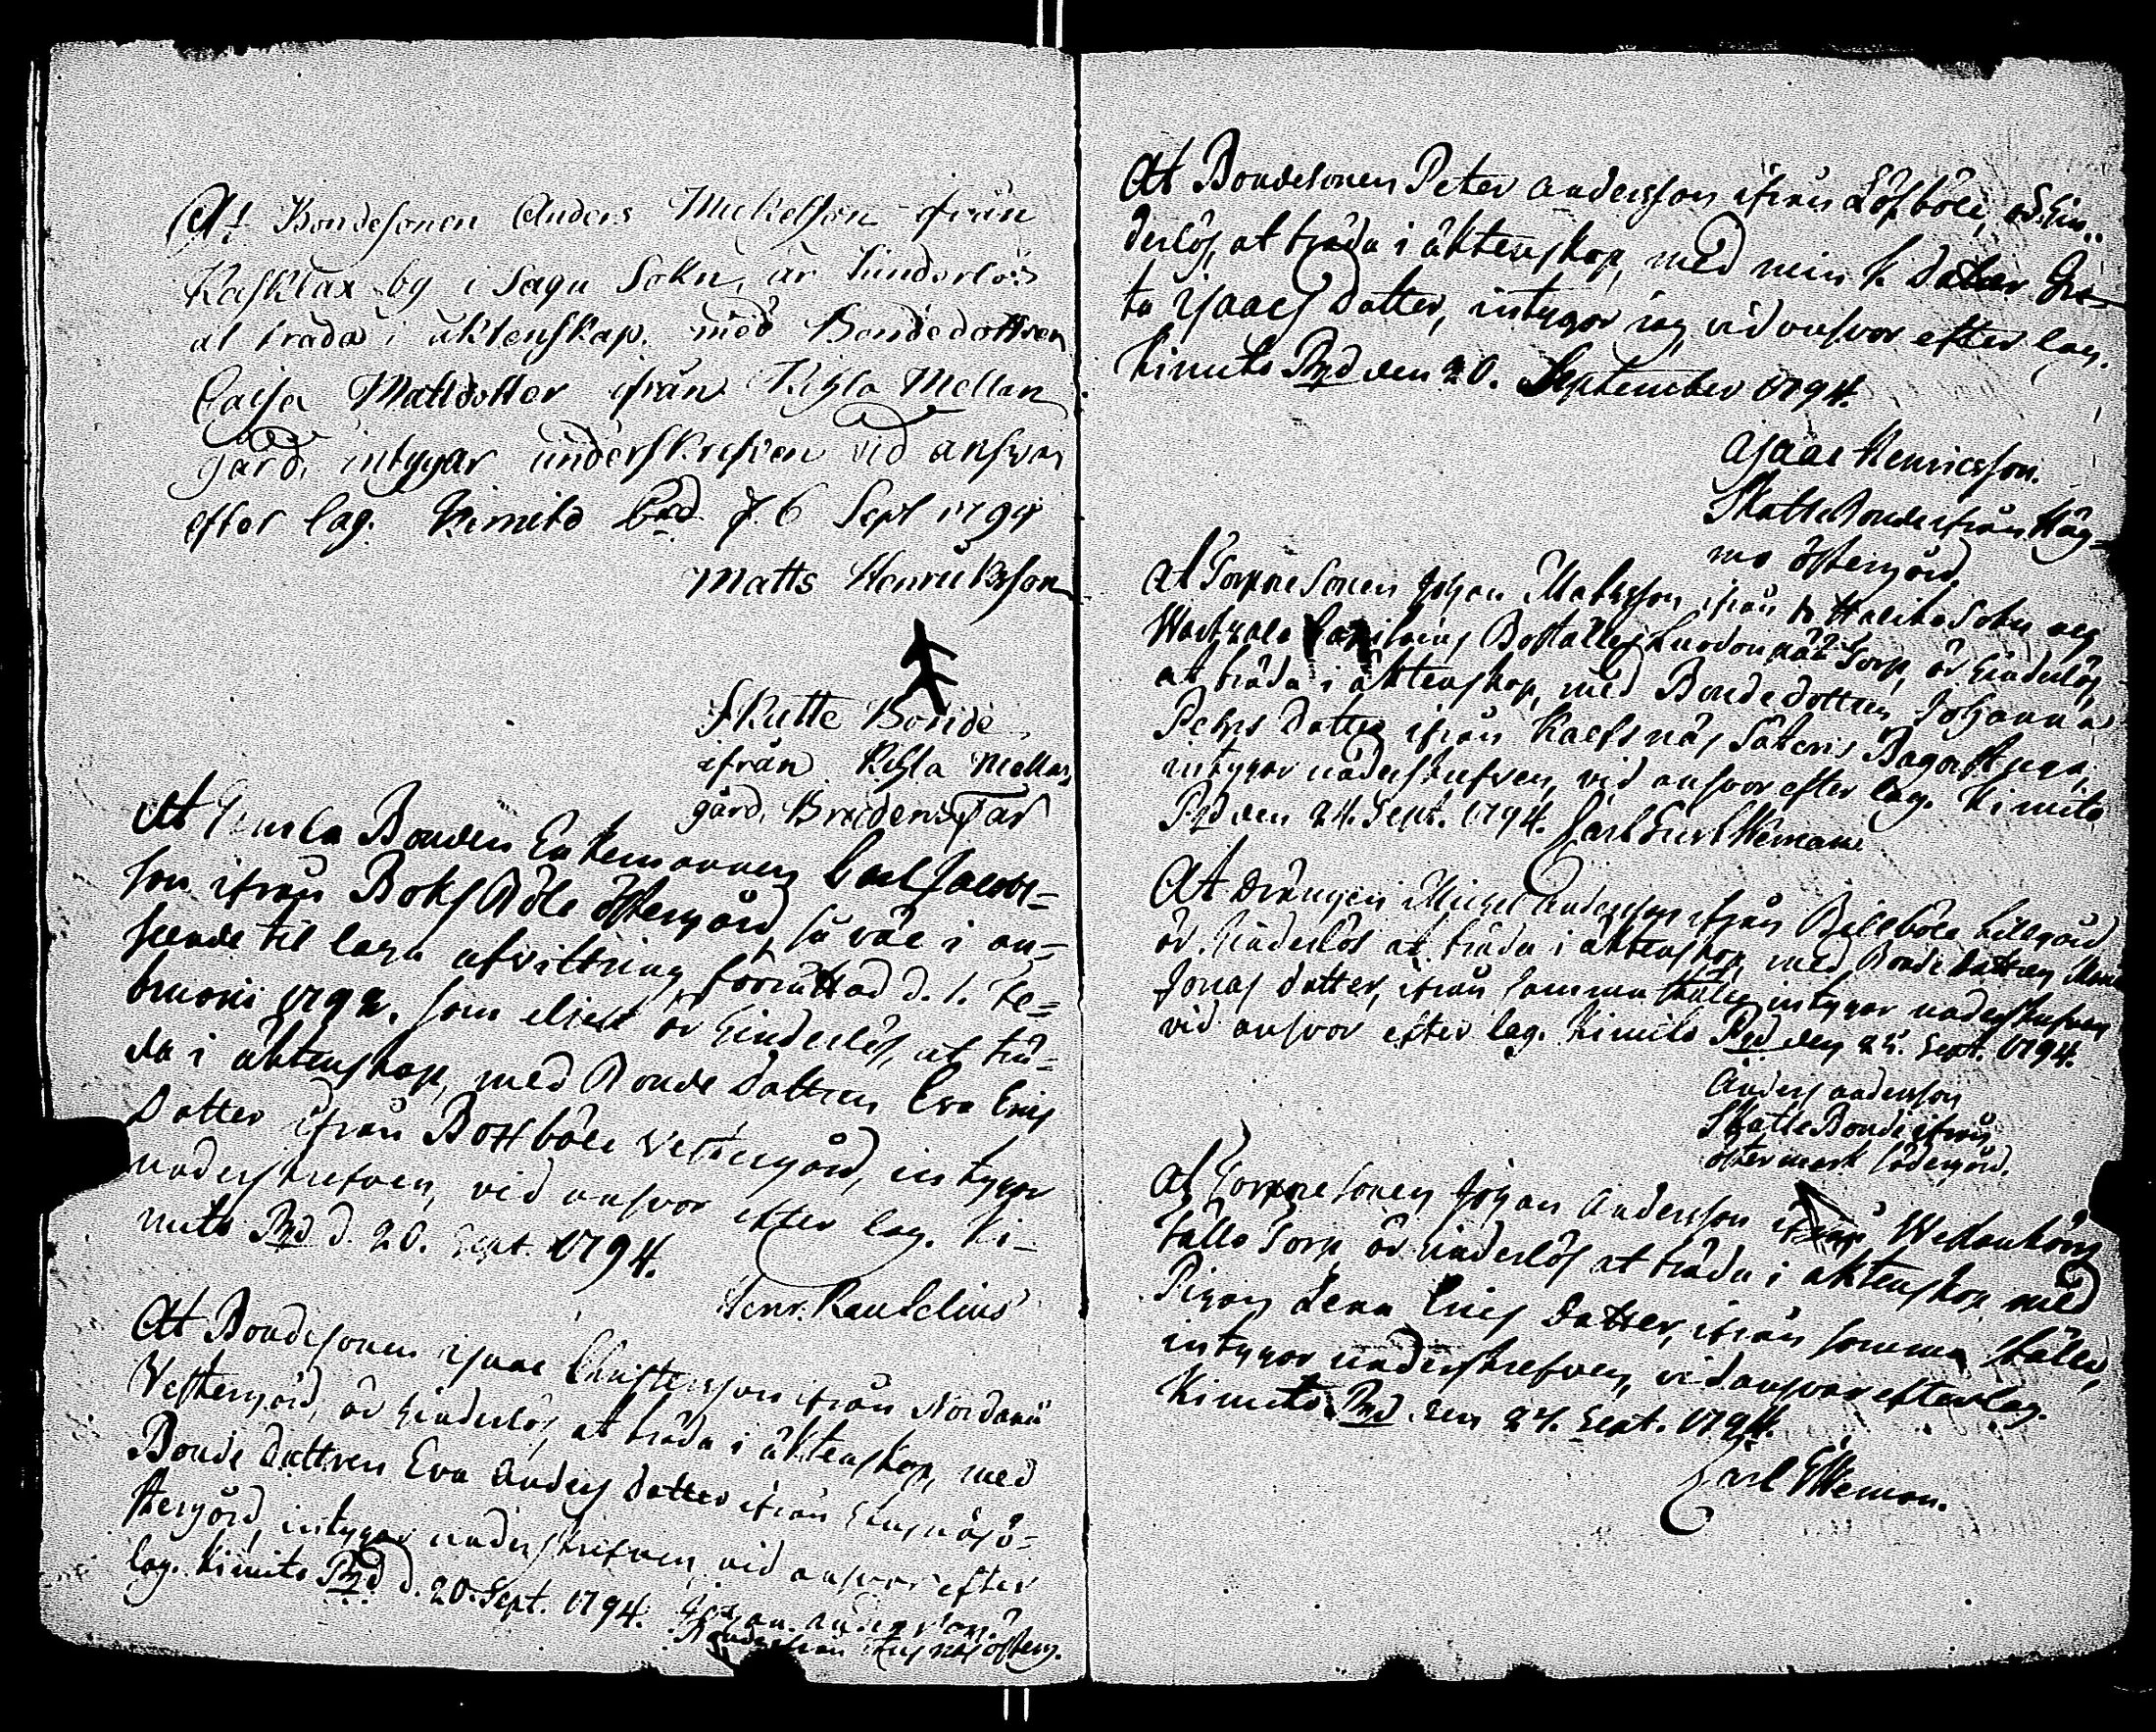 At Bondesonen Anders Mickelsson ifrån
Kasklax by i Sagu Sokn, är hinderlös
at träda i äktenskap, med Bondedottren
Caisa Mattsdotter ifrån Kihla Mellan
gård, intygar underskrefven vid answar
efter lag. Kimito d. 6 Sept 1794
Matts Henriksson
Skatte Bonde
ifrån Kihla Mellan
gård, Brudens Far
At Gamla Bonden Enkemannen Carl Jacobs-
son ifrån Böle östergård, så väl i an-
seende til laga afvittring, förrättad d. 1. Fe-
bruarii 1792. som eljest är hinderlös, at trä-
da i äktenskap, med Bonde Dottren Eva Erics
Dotter ifrån Böle Vestergård, intygar
underskrefven, vid ansvar efter lag. Ki-
mito d. 20. Sept. 1794.
Henr. Rancelius
At Bondesonen Isaac Christersson ifrån Nordanå
Vestergård, är hinderlös, at träda i äktenskap, med
Bonde Dottren Eva Anders Dotter ifrån Ö-
stergård, intygar underskrefven, vid ansvar efter
lag. Kimito d. 20. Sept. 1794. Johan Andersson
Bonde ifrån österg.
At Bondesonen Peter Andersson ifrån Löfböle, är hin-
derlös, at träda i äktenskap, med min k. Dotter Gre-
ta Isaacs Dotter, intygar jag, vid ansvar efter lag.
Kimito den 20. September 1794.
Isaac Henricsson.
Skatte Bonde ifrån Häg-
mo östergård.
At Torpare Sonen Johan Mattsson ifrån Haliko Sokn
Boställes Torp, är hinderlös,
at träda i äktenskap, med Bonde dottren Johanna
Pehrs Dotter ifrån Säteris Bagarstuga,
intygar underskrefven, vid ansvar efter lag. Kimito
den 24. Sept. 1794. Carl
At Drängen Michel Andersson ifrån Billböle Lillgård
är hinderlös at träda i äktenskap, med Bonde Dottren
Jonas Dotter, ifrån samma ställe, intygar underskrefven
vid ansvar efter lag. Kimito den 25. Sept. 1794.
Anders Andersson
Skatte Bonde ifrån
östermark södergård.
At Torpare Sonen Johan Andersson ifrån
Torp är hinderlös at träda i äktenskap med
Pigan Lena Erics Dotter, ifrån samma ställe,
intygar underskrefven, vid ansvar efter lag.
Kimito den 27. Sept. 1794.
Carl